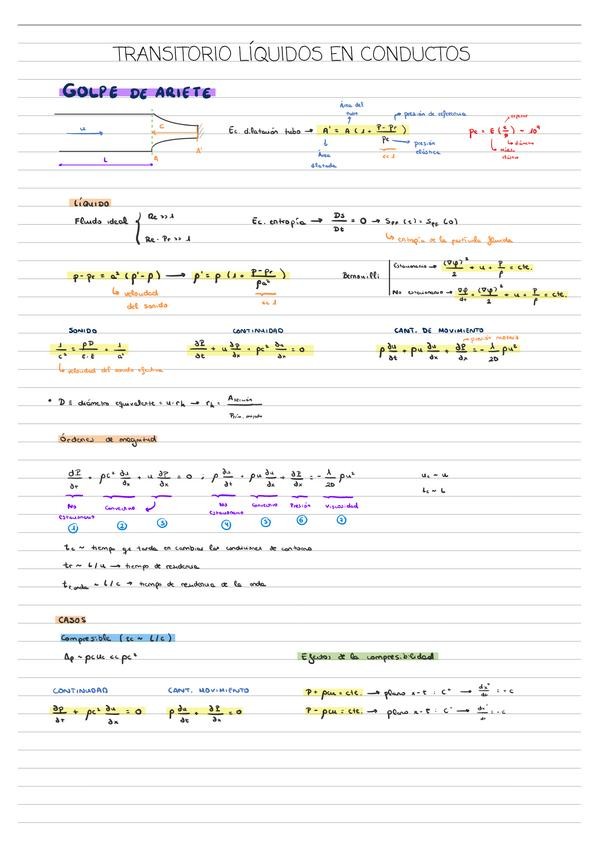 TRANSITORIO LÍQUIDOS EN CONDUCTOS
GOLPE DE ARIETE
u
c
L
A
A'
Ec. dilatación tubo → A' = A (1 + (P - Pr)/Pe)
Área del tubo
presión de referencia
Área dilatada
<< 1
presión elástica
Pe = E (e/D) ~ 10⁹
espesor
diámetro
LÍQUIDO
Fluido ideal { Re >> 1
Re · Pr >> 1
Ec. entropía → Ds/Dt = 0 →
entropía de la partícula fluida
p - pr = a² (ρ' - ρ) → ρ' = ρ (1 + (p - pr)/ρa²)
velocidad del sonido
<< 1
Bernouilli
Estacionario → (∇φ)²/2 + u + P/ρ = cte.
No estacionario → ∂φ/∂t + (∇φ)²/2 + u + P/ρ = cte.
SONIDO
CONTINUIDAD
CANT. DE MOVIMIENTO
presión motriz
1/c² = ρD/e·E + 1/a²
∂P/∂t + u ∂P/∂x + ρc² ∂u/∂x = 0
ρ ∂u/∂t + ρu ∂u/∂x + ∂P/∂x = - λ/2D ρu²
velocidad del sonido efectiva
• D ≡ diámetro equivalente = 4·rh → rh = Asección / Perím. mojado
Órdenes de magnitud
∂P/∂t + ρc² ∂u/∂x + u ∂P/∂x = 0 ; ρ ∂u/∂t + ρu ∂u/∂x + ∂P/∂x = - λ/2D ρu²
uc ~ u
Lc ~ L
No estacionario
Convectivo
No estacionario
Convectivo
Presión
Viscosidad
1 2 3 4 5 6 7
tc ~ tiempo qe tarda en cambiar las condiciones de contorno
tr ~ L/u → tiempo de residencia
tr onda ~ L/c → tiempo de residencia de la onda
CASOS
Compresible (tc ~ L/c)
Δp ~ ρcuc << ρc²
Efectos de la compresibilidad
CONTINUIDAD
CANT. MOVIMIENTO
∂p/∂t + ρc² ∂u/∂x = 0
ρ ∂u/∂t + ∂P/∂x = 0
P + ρcu = cte. → plano x-t : C⁺ →
P - ρcu = cte. → plano x-t : C⁻ →